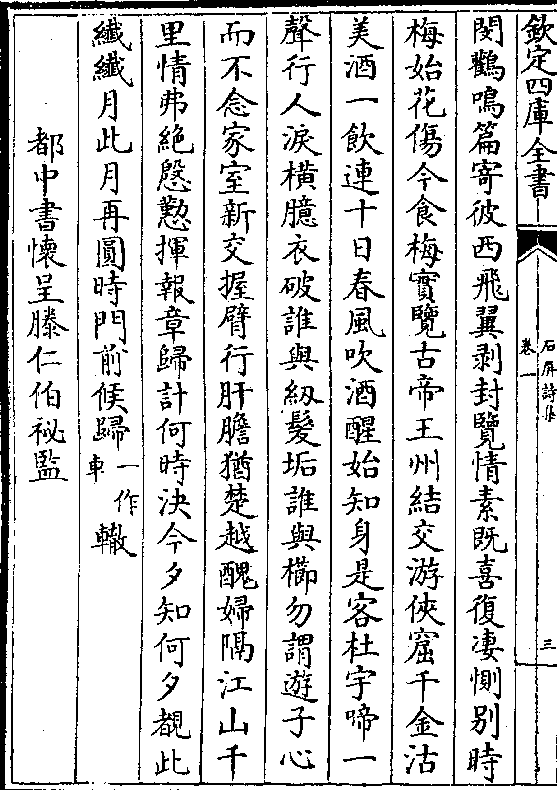 欽定四庫全書
石屏詩集
卷一
三
閔鸛鳴篇寄彼西飛翼剥封覽情素既喜復凄惻别時
梅始花傷今食梅實覽古帝王州結交游俠窟千金沽
美酒一飲連十日春風吹酒醒始知身是客杜宇啼一
聲行人淚橫臆衣破誰與紉髮垢誰與櫛勿謂遊子心
而不念家室新交握臂行肝膽猶楚越醜婦隔江山千
里情弗絶慇懃揮報章歸計何時決今夕知何夕覩此
纖纖月此月再圓時門前候歸一作車轍
都中書懷呈滕仁伯祕監